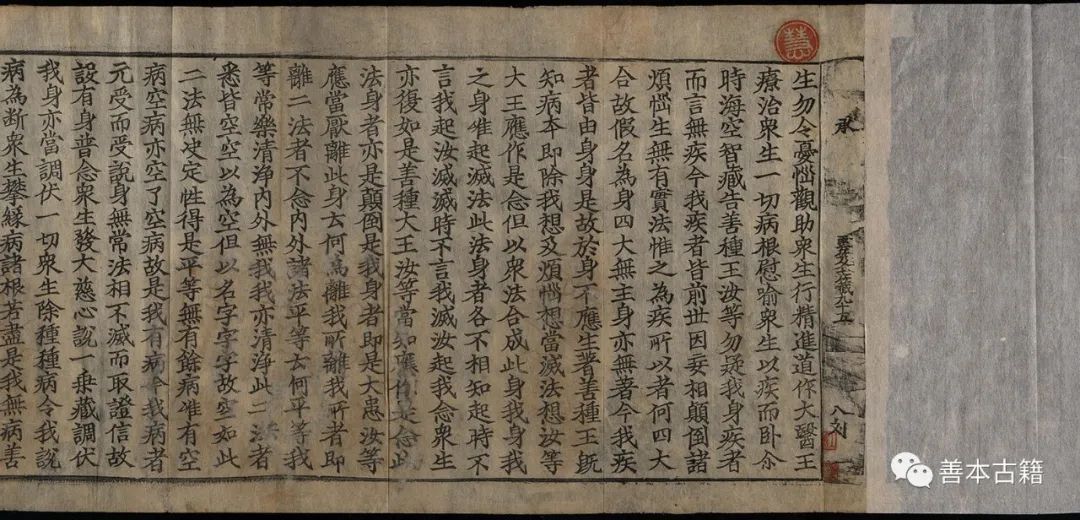 承
生勿令憂惱觀助衆生行精進道作大醫王
療治衆生一切病根慰喻衆生以疾而卧尒
時海空智藏告善種王汝等勿疑我身疾者
而言無疾今我疾者皆前世因妄相顛倒諸
煩惱生無有實法惟之為疾所以者何四大
合故假名為身四大無主身亦無著今我疾
者皆由身身是故於身不應生著善種王旣
知病本即除我想及煩惱想當滅法想汝等
大王應作是念但以衆法合成此身我身我
之身唯起滅法此法身者各不相知起時不
言我起汝滅滅時不言我滅汝起我念衆生
亦復如是善種大王汝等當知應作是念此
法身者亦是顛倒是我身者即是大患汝等
應當厭離此身去何為離我所離我所者即
離二法者不念内外諸法平等去何平等我
等常樂清浄内外無我我亦清浄此二法者
悉皆空空以為空但以名字字字故空如此
二法無決定性得是平等無有餘病唯有空
病空病亦空了空病故是我有病令我病者
元受而受說身無常法相不滅而取證信故
設有身普念衆生發大慈心說一乗藏調伏
我身亦當調伏一切衆生除種種病令我說
病為断衆生攀緣病諸根若盡是我無病善
善本古籍